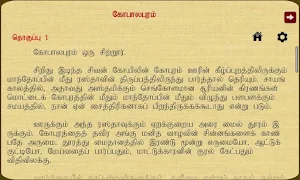 கோபாலபுரம்
தொகுப்பு 1
கோபாலபுரம் ஒரு சிற்றூர்.
சிறிது இடிந்த சிவன் கோயிலின் கோபுரம் ஊரின் கீழ்ப்புறத்திலிருக்கும்
மாந்தோப்பின் மீது ரஸ்தாவின் திருப்பத்திலிருந்து பார்த்தால் தெரியும். சாயங்
காலத்தில், அதாவது அஸ்தமிக்கும் செங்கோலமான சூரியனின் கிரணங்கள்
மொட்டைக் கோபுரத்தின் மீதும் மாந்தோப்பின் மீதும் விழுந்து பளபளக்கும்
சமயத்தில், நான் ஏன் சைத்திரிகனாகப் பிறந்திருக்கக்கூடாது என்று படும்.
ஊருக்கும் அந்த ரஸ்தாவுக்கும் ஏறக்குறைய அரை மைல் தூரம் இ
ருக்கும். கோபுரத்தைத் தவிர அங்கு மனித வாழ்வின் சின்னங்களைக் காண்
பதே அருமை. தூரத்து மைதானத்தில் இரண்டு மூன்று எருமையோ, ஆட்டுக்
குட்டியோ, மேய்வதைப் பார்ப்பதும், மாட்டுக்காரனின் குரல் கேட்பதும்
விதிவிலக்கு.